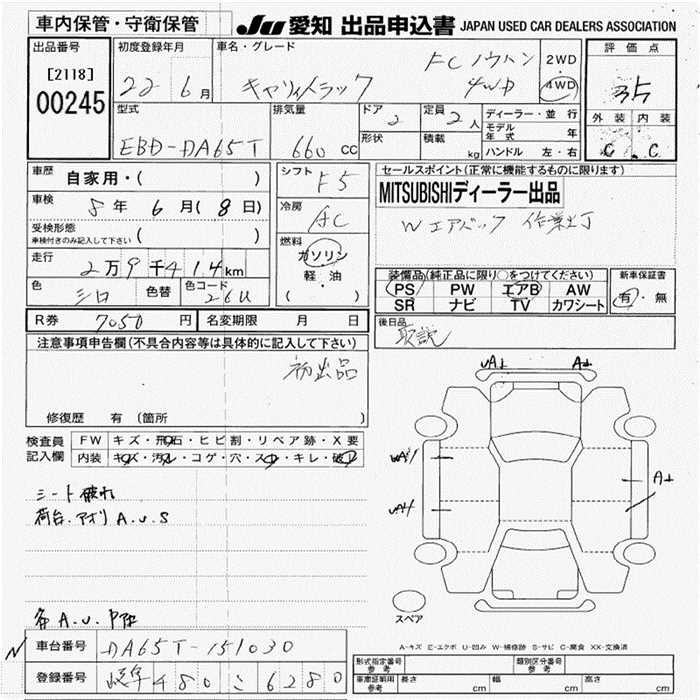 車内保管・守衛保管
JU 愛知 出品申込書 JAPAN USED CAR DEALERS ASSOCIATION
出品番号
[2118]
00245
初度登録年月
22 6月
車名・グレード
キャリイトラック
FCノウハン
4WD
2WD
4WD
評価点
3.5
外装 内装
C C
型式
EBD-DA65T
排気量
660 cc
ドア
2
形状
定員
2人
積載
kg
ディーラー・並行
モデル年式 年
ハンドル 左・右
車歴
自家用・( )
車検
8年 6月 (8日)
受検形態
車検付きのみ記入して下さい ( )
走行
2万9千414km
色
シロ
色替
色コード
26U
シフト F5
冷房
AC
燃料
ガソリン
・
軽・油
( )
セールスポイント(正常に機能するものに限ります)
MITSUBISHIディーラー出品
Wエアバック 作業灯
装備品(純正品に限り○をつけてください)
PS PW エアB AW
SR ナビ TV カワシート
新車保証書
有・無
R券 7050円
名変期限 月 日
後日品
取説
注意事項申告欄(不具合内容等は具体的に記入して下さい)
初出品
修復歴 有 (箇所 )
検査員記入欄
FW キズ・飛石・ヒビ割・リペア跡・X要
内装 キズ・汚れ・コゲ・穴・スレ・キレ・破れ
シート破れ
荷台.アオリ A.U.S
各 A.U.
車台番号 DA65T-151030
登録番号 岐阜 480 こ 6280
UA1 A1
A1
スペア
A-キズ E-エクボ U-凹み W-補修跡 S-サビ C-腐食 XX-交換済
形式指定番号 参考
類別区分番号 参考
車庫証明用 参考 長さ cm 幅 cm 高さ cm